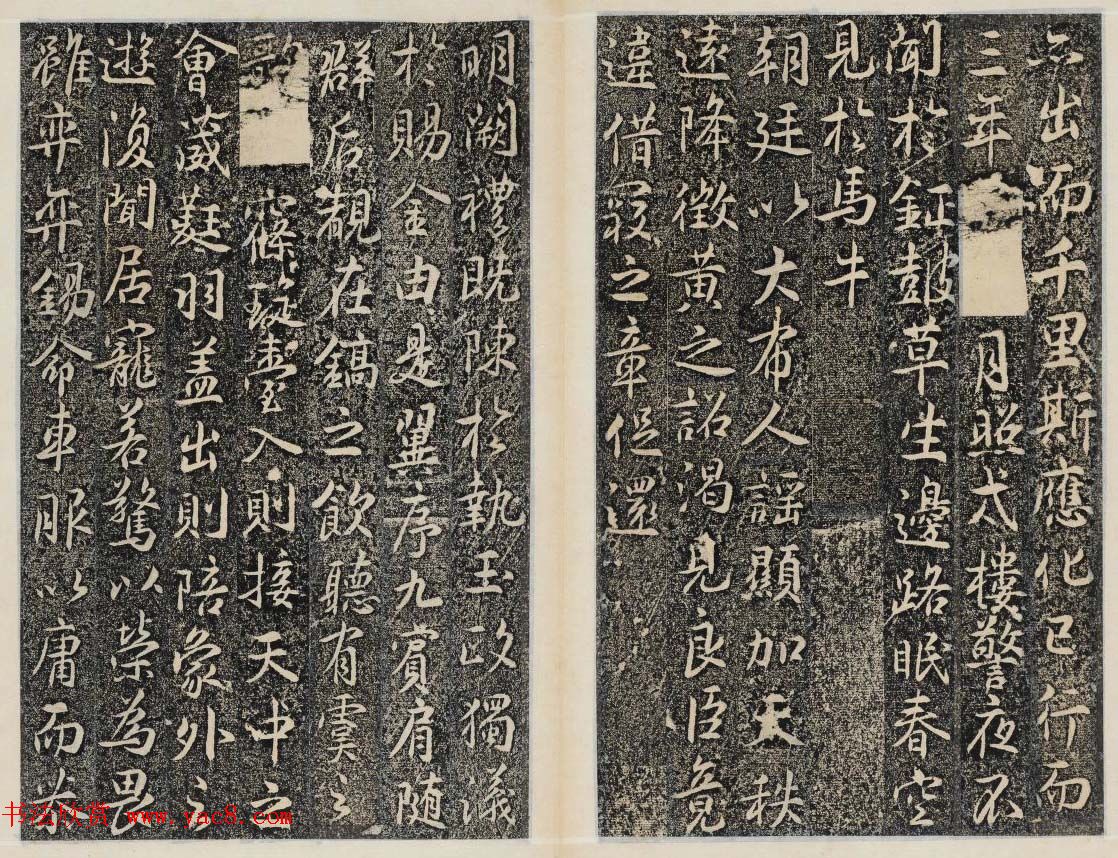 不出而千里斯應化已行而
三年 月照戍樓警夜不
聞於鉦鼓草生邊路眠春空
見於馬牛
朝廷以大布人謡顯加天秩
遠降徵黃之詔渴見良臣竟
違借寇之章促還
明闕禮既陳於執玉政獨議
於賜金由是翼序九賓肩随
群后觀在鎬之飲聽有虞之
歌 窱琁臺入則接天中之
會葳蕤羽盖出則陪象外之
遊復聞居寵若驚以榮為畏
雖弈弈錫命車服以庸而
书法欣赏 www.yac8.com